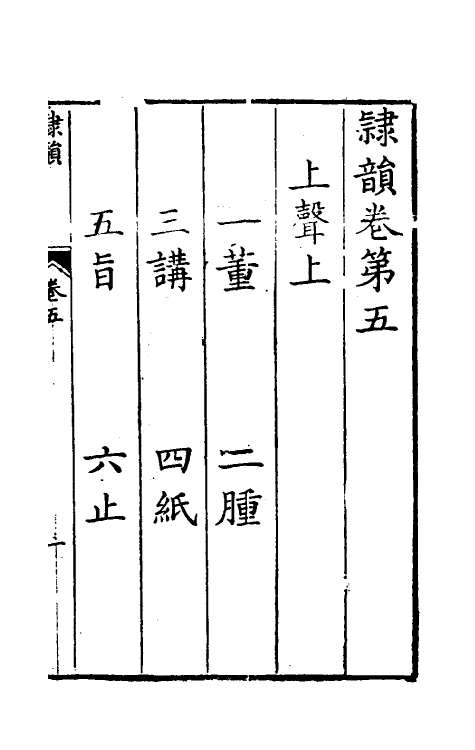 隷韻卷第五
上聲上
一董 二腫
三講 四紙
五旨 六止
隷韻 卷五 一